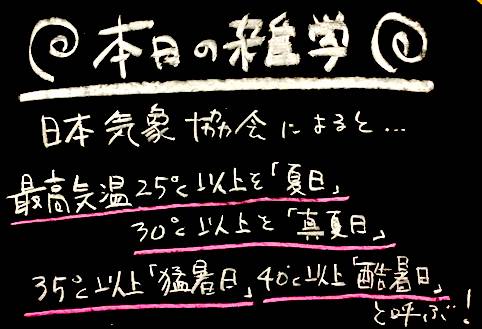 本日の雑学
日本気象協会によると…
最高気温25℃以上を「夏日」
30℃以上を「真夏日」
35℃以上「猛暑日」40℃以上「酷暑日」
と呼ぶ!